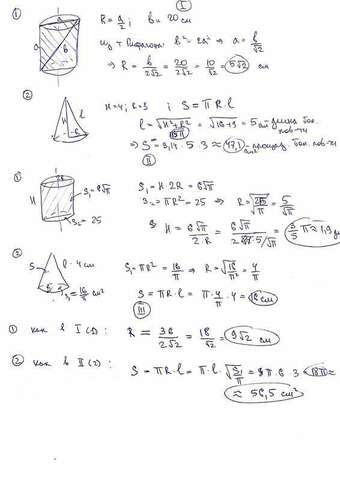 I
① R = a/2 ; b = 20 см
a b
из т. Пифагора: b² = 2a² ⇒ a = b/√2
⇒ R = b/2√2 = 20/2√2 = 10/√2 = 5√2 см
② H = 4; R = 3 ; S = πR·l
H l
l = √H²+R² = √16+9 = 5 см - длина бок. пов-ти
15π
⇒ S = 3,14 · 5 · 3 ≈ 47,1 см² - площадь бок. пов-ти
II
① S₁ = H·2R = 6√π
H
S₂ = 25
S₂ = πR² = 25 ⇒ R = √25/π = 5/√π
H = 6√π/2·R = 6√π/2·5/√π = 3/5 π ≈ 1,9
② l = 4 см
S
S₁ = 16/π см²
S₁ = πR² = 16/π ⇒ R = √16/π² = 4/π
S = πR·l = π · 4/π · 4 = 16 см
III
① как в I (1) : R = 36/2√2 = 18/√2 = 9√2 см
② как в II (2) : S = πR·l = π·l·
≈ 56,5 см²